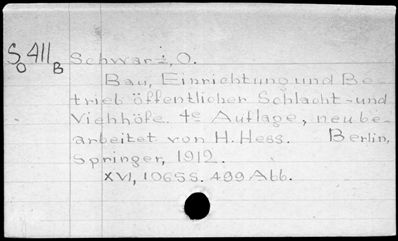 So 411 B Schwarz, O.
Bau, Einrichtung und Be-
trieb öffentlicher Schlacht-und
Viehhöfe. 4e Auflage, neu be-
arbeitet von H. Hess. Berlin,
Springer, 1912.
XVI, 1065S. 499 Abb.